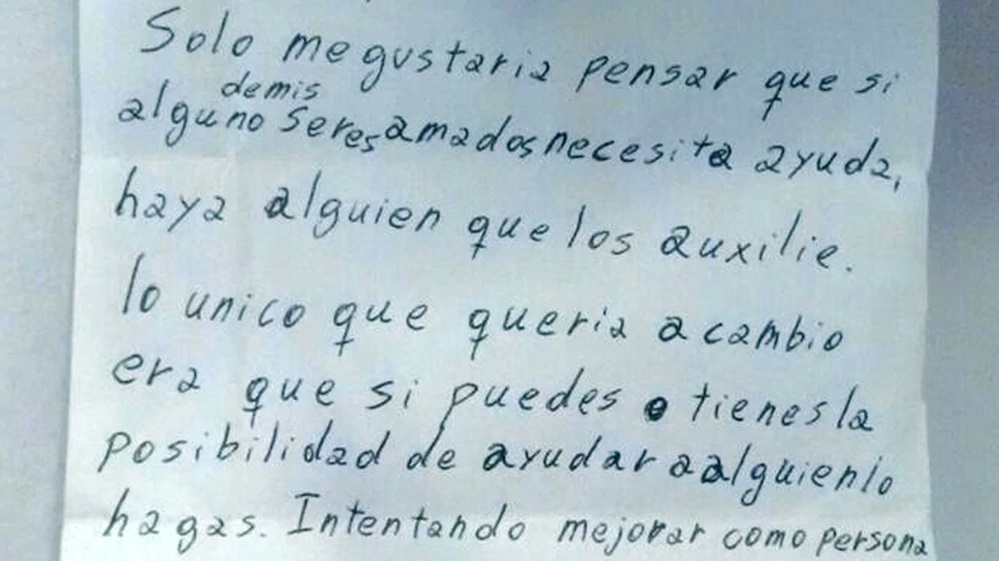 Solo me gustaria pensar que si
alguno demis seres amados necesita ayuda,
haya alguien que los auxilie.
lo unico que queria a cambio
era que si puedes o tienes la
posibilidad de ayudar a alguien lo
hagas. Intentando mejorar como persona